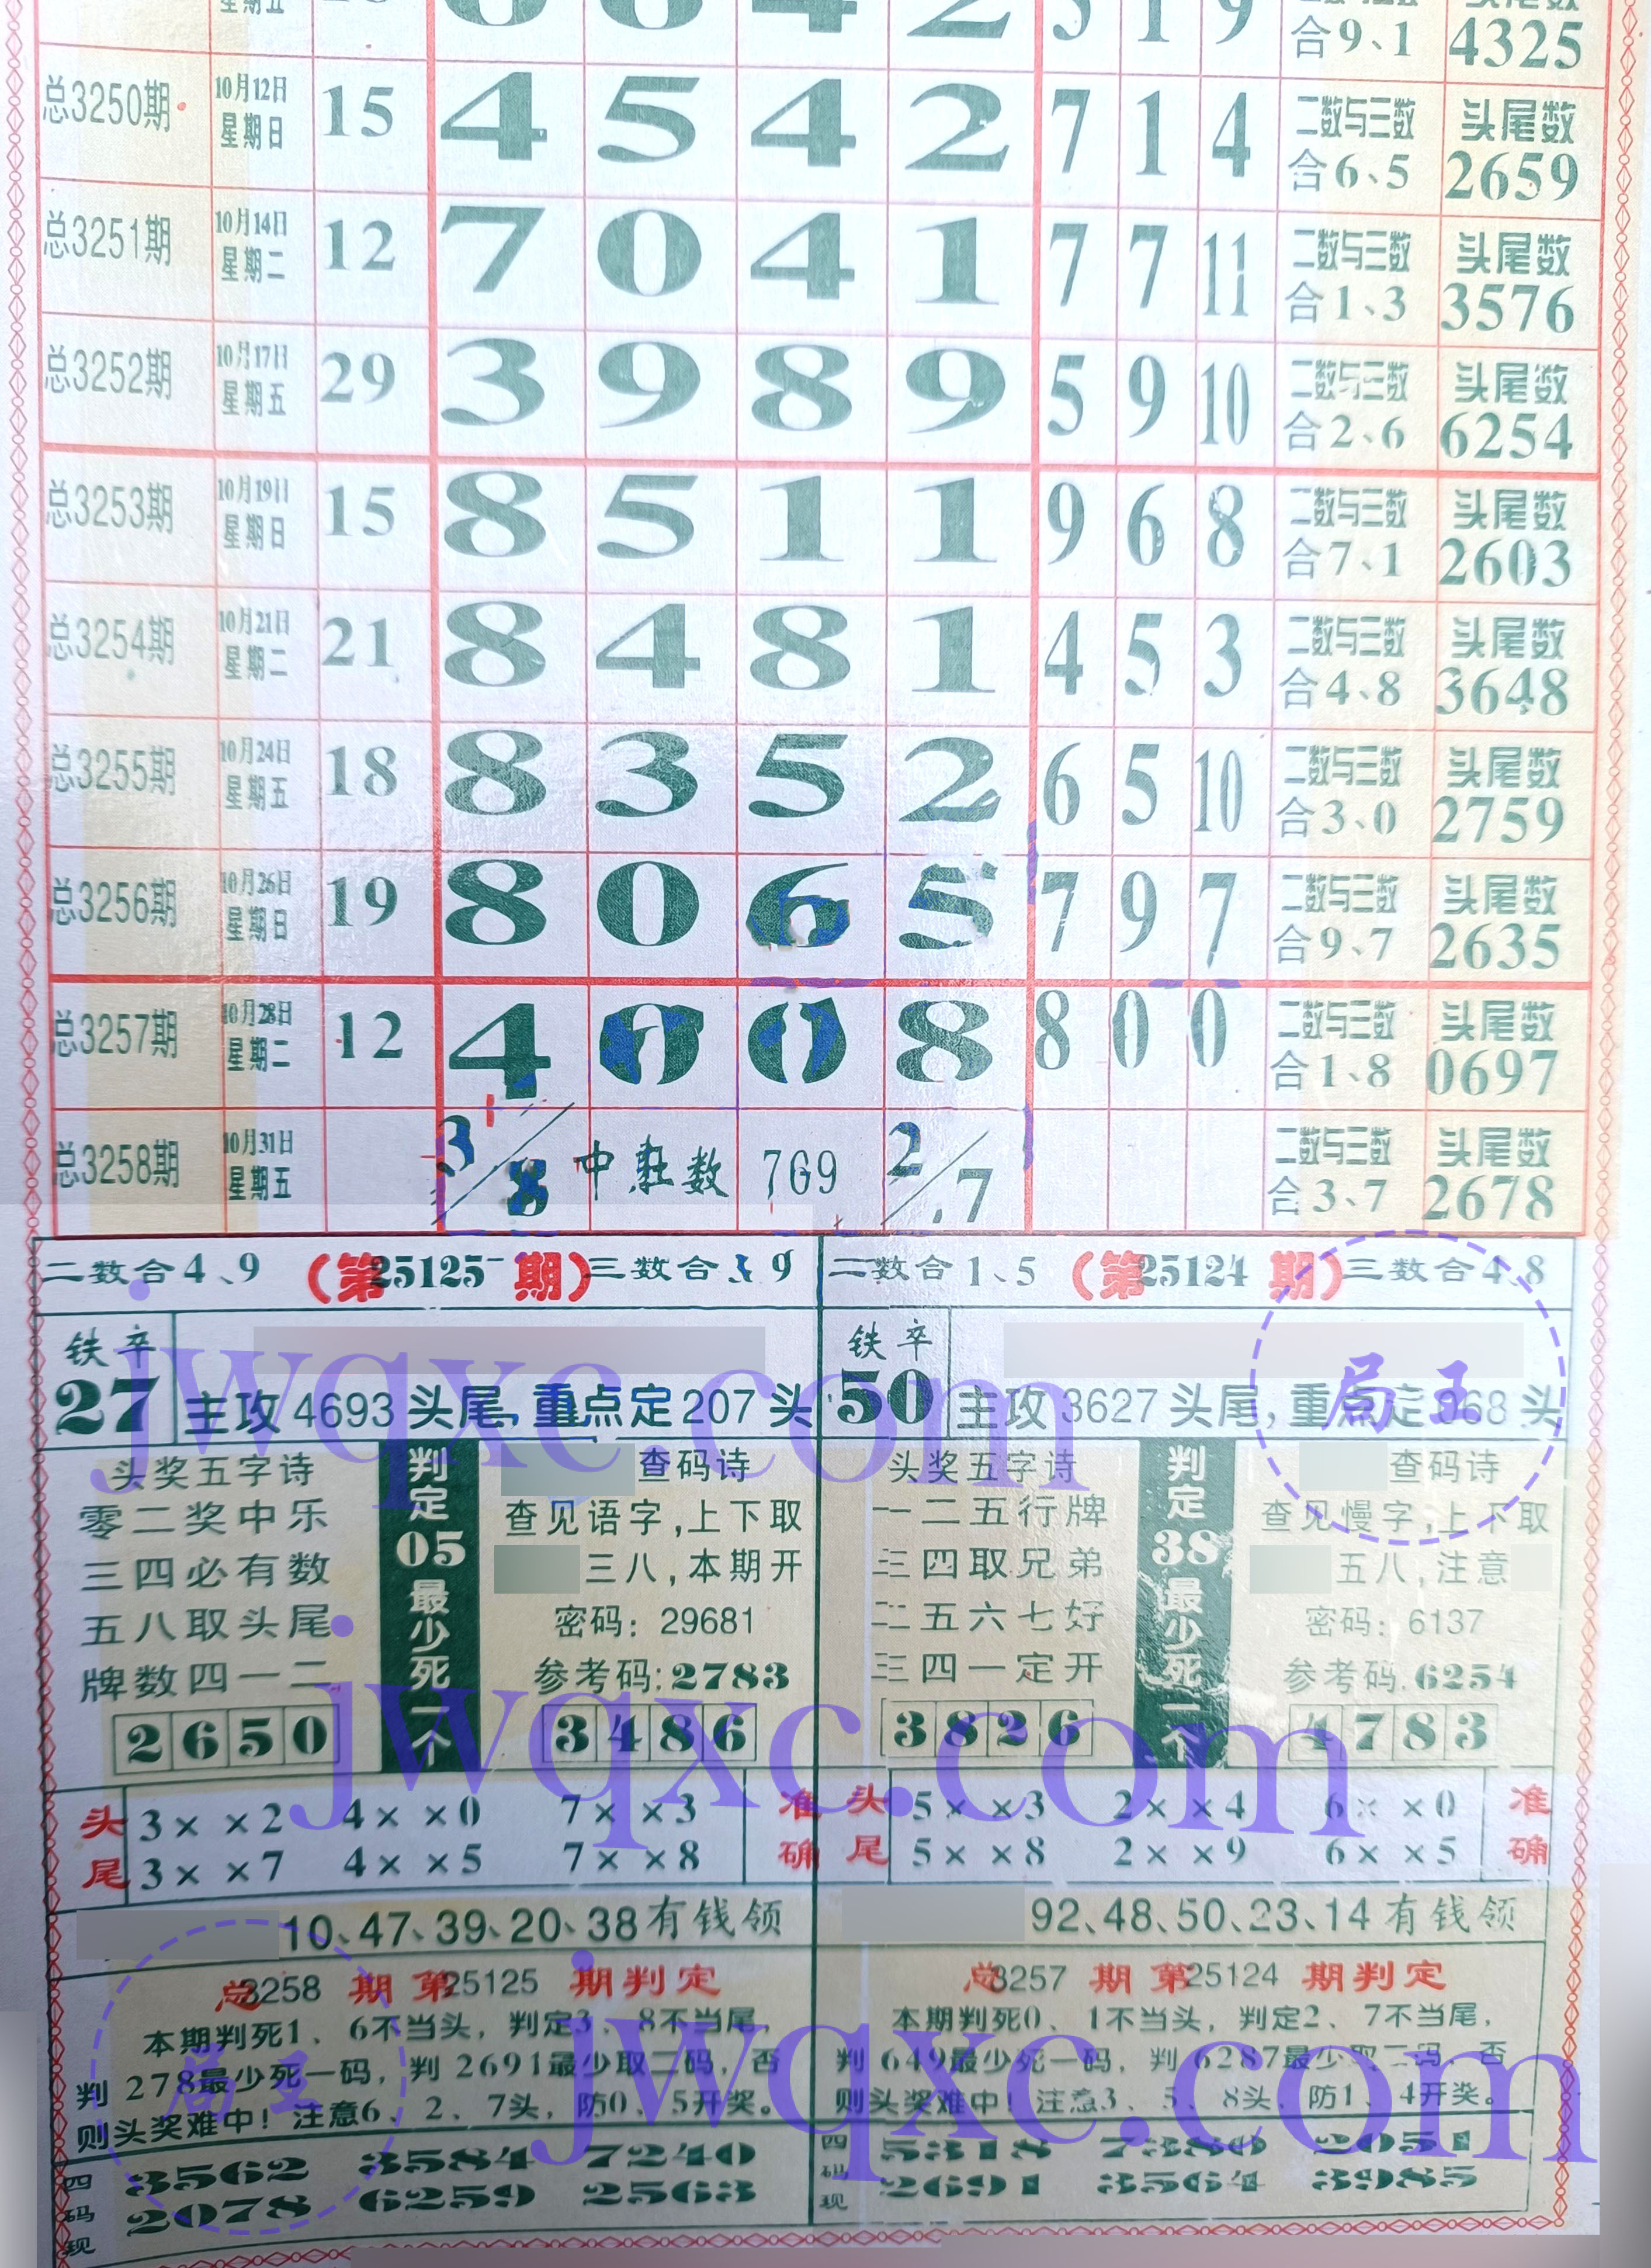 合9、1 4325
总3250期 10月12日 星期日 15 4 5 4 2 7 1 4 二数与三数 合6、5 头尾数 2659
总3251期 10月14日 星期二 12 7 0 4 1 7 7 11 二数与三数 合1、3 头尾数 3576
总3252期 10月17日 星期五 29 3 9 8 9 5 9 10 二数与三数 合2、6 头尾数 6254
总3253期 10月19日 星期日 15 8 5 1 1 9 6 8 二数与三数 合7、1 头尾数 2603
总3254期 10月21日 星期二 21 8 4 8 1 4 5 3 二数与三数 合4、8 头尾数 3648
总3255期 10月24日 星期五 18 8 3 5 2 6 5 10 二数与三数 合3、0 头尾数 2759
总3256期 10月26日 星期日 19 8 0 6 5 7 9 7 二数与三数 合9、7 头尾数 2635
总3257期 10月28日 星期二 12 4 0 0 8 8 0 0 二数与三数 合1、8 头尾数 0697
总3258期 10月31日 星期五 3/8 中肚数 769 2/7 二数与三数 合3、7 头尾数 2678
二数合4、9 (第25125期) 三数合 9
铁卒 27
主攻4693头尾,重点定207头
头奖五字诗
零二奖中乐
三四必有数
五八取头尾
牌数四一二
2650
判定05最少死一个
查码诗
查见语字,上下取
三八,本期开
密码:29681
参考码:2783
3486
头尾
3××2 4××0 7××3
3××7 4××5 7××8
准确
10、47、39、20、38有钱领
总3258期第25125期判定
本期判死1、6不当头,判定3、8不当尾,
判278最少死一码,判2691最少取二码,否
则头奖难中!注意6、2、7头,防0、5开奖。
四码现
3562 3584 7240
2078 6259 2563
二数合1、5 (第25124期) 三数合4、8
铁卒 50
主攻3627头尾,重点定968头
头奖五字诗
一二五行牌
三四取兄弟
二五六七好
三四一定开
3826
判定38最少死一个
查码诗
查见慢字,上下取
五八,注意
密码:6137
参考码:6254
4783
头尾
5××3 2××4 6××0
5××8 2××9 6××5
准确
92、48、50、23、14有钱领
总3257期第25124期判定
本期判死0、1不当头,判定2、7不当尾,
判649最少死一码,判6287最少取二码,否
则头奖难中!注意3、5、8头,防1、4开奖。
四码现
5318 7380 2051
2691 3564 3985
jwqxc.com
jwqxc.com
jwqxc.com
局王
局王